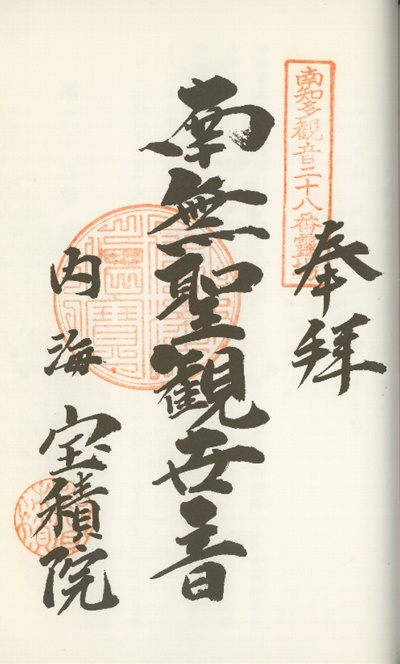 南知多観音二十八番霊
奉拝
南無聖観世音
内海
宝積院